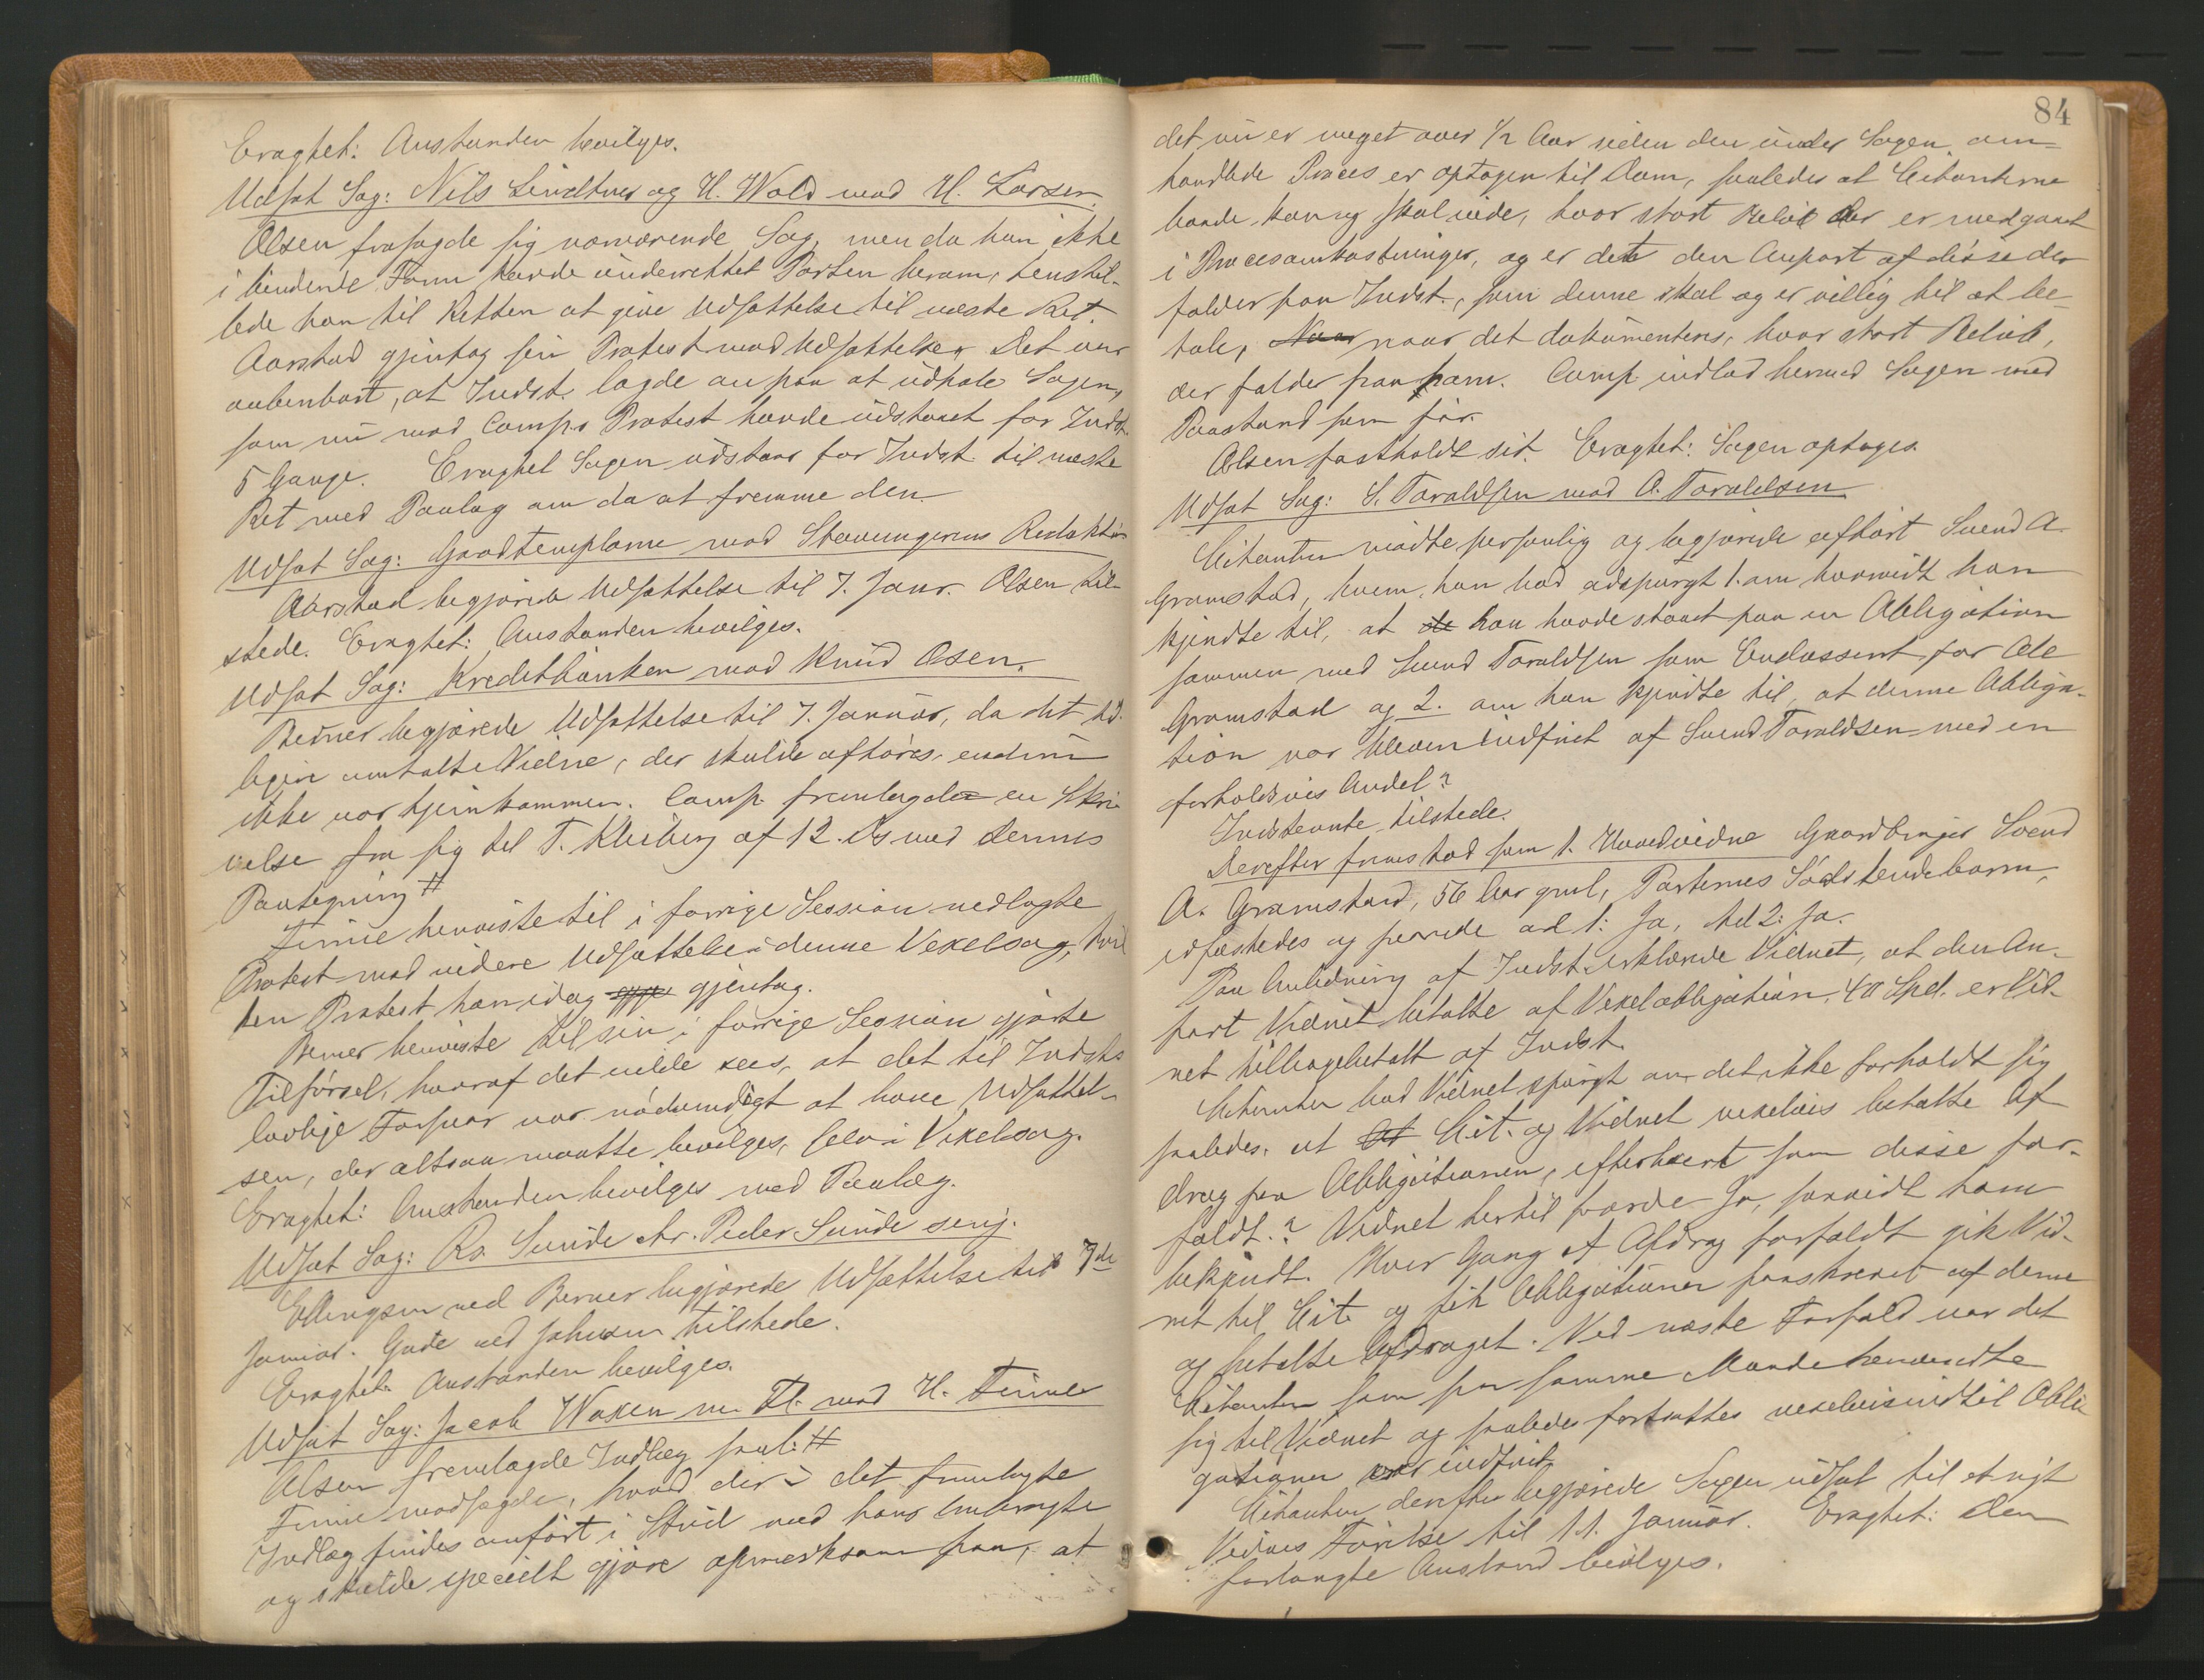 Eragtet: Anstanden bevilges.
Udsat Sag: Nils Lindtner og H. Wold mod H. Larsen.
Olsen frasagde sig nærværende Sag, men da han ikke
i bindende Form havde underrettet Parten herom, henstil-
lede han til Retten at give Udsættelse til næste Ret.
Aarstad gjentog sin Protest mod Udsættelse. Det var
aabenbart, at Indst. lagde an paa at udhale Sagen,
som nu mod Comp.s Protest havde udstaaet for Indst.
5 Gange. Eragtet Sagen udstaar for Indst. til næste
Ret med Paalæg om da at fremme den
Udsat Sag: Goodtemplarne mod Stavangerens Redaktør
Aarstad begjærede Udsættelse til 7. Janr. Olsen til-
stede. Eragtet: Anstanden bevilges.
Udsat Sag: Kreditbanken mod Knud Osen.
Berner begjærede Udsættelse til 7. Januar, da det tid-
ligere omtalte Vidne, der skulde afhøres, endnu
ikke var hjemkommen. Comp. fremlagde en Skri-
velse fra sig til T. Kleiberg af 12. ds med dennes
Paategning #
Finne henviste til i forrige Session nedlagte
Protest mod videre Udsættelse i denne Vexelsag, hvil
ken Protest han idag gjentog.
Berner henviste til sin i forrige Session gjorte
Tilførsel, hvoraf det vilde sees, at det til Indsts
lovlige Forsvar var nødvendigt at have Udsættel-
sen, der altsaa maatte bevilges, selv i Vexelsag.
Eragtet: Anstanden bevilges med Paalæg.
Udsat Sag: Ra. Sunde ctr. Peder Sunde senj.
Ellingsen ved Berner begjærede Udsættelse til 7de
Januar. Gude ved Johnsen tilstede.
Eragtet: Anstanden bevilges.
Udsat Sag: Jacob Waxen m. Fl. mod H. Finne
Olsen fremlagde Indlæg saal: #
Finne modsagde, hvad der i det fremlagte
Indlæg findes anført i Strid med hans Anbragte
og skulde specielt gjøre opmærksom paa, at
84
det nu er meget over 1/2 Aar siden den under Sagen om-
handlede Proces er optagen til Dom, saaledes at Citanterne
baade kan og skal vide, hvor stort Beløb der er medgaaet
i Procesomkostninger, og er det den Anpart af disse der
falder paa Indst., som denne skal og er villig til at be-
tale, naar det dokumenteres, hvor stort Beløb,
der falder paa ham. Comp. indlod hermed Sagen med
Paastand som før.
Olsen fastholdt sit. Eragtet: Sagen optages.
Udsat Sag: S. Taraldsen mod A. Taraldsen
Citanten mødte personlig og begjærede afhørt Svend A.
Gramstad, hvem han bad adspurgt 1. om hvorvidt han
kjendte til, at han havde staaet paa en Obligation
sammen med Svend Taraldsen som Endossent for Ole
Gramstad og 2. om han kjendte til, at denne Obliga-
tion var bleven indfriet af Svend Taraldsen med en
forholdsvis Andel?
Indstevnte tilstede.
Derefter fremstod som 1. Hovedvidne Gaardbruger Svend
A. Gramstad, 56 Aar gml, Parternes Sødskendebarn,
edfæstedes og svarede ad 1: Ja, ad 2: Ja.
Paa Anledning af Indst. erklærede Vidnet, at den An-
part Vidnet betalte af Vexelobligation, 40 Spd. er Vid-
net tilbagebetalt af Indst.
Citanten bad Vidnet spurgt om det ikke forholdt sig
saaledes, at Cit. og Vidnet vexelvis betalte Af
drag paa Obligationen, efterhvert som disse for-
faldt.? Vidnet hertil svarede Ja, forsaavidt ham
bekjendt. Hver Gang et Afdrag forfaldt gik Vid-
net til Cit. og fik Obligationen paaskrevet af denne
og betalte Afdraget. Ved næste Forfald var det
Citanten som paa samme Maade henvendte
sig til Vidnet og saaledes fortsattes vexelvis indtil Obli
gationen var indfriet
Citanten derefter begjærede Sagen udsat til et nyt
Vidnes Førelse til 11. Januar. Eragtet: Den
forlangte Anstand bevilges.